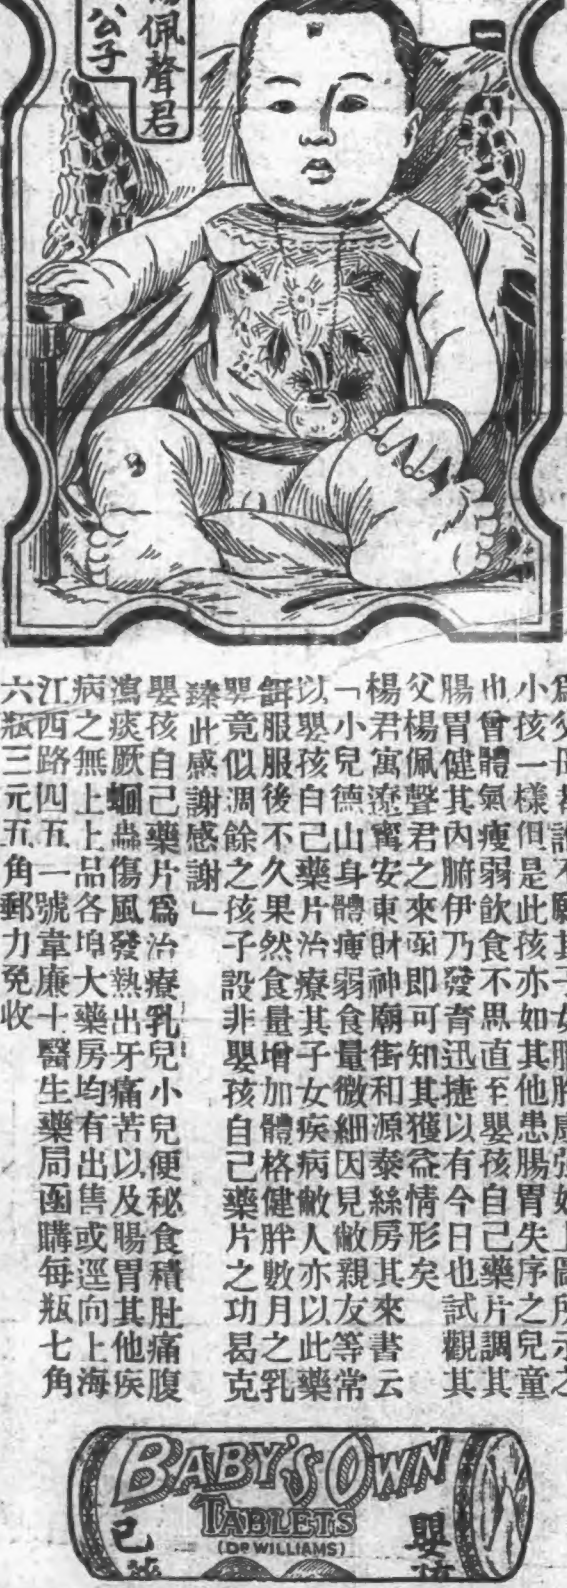 佩聲君
公子
一
爲父母者誰不願其子女肥胖康强如上圖所示之
小孩一樣但是此孩亦如其他患腸胃失序之兒童
也曾體氣瘦弱飲食不思直至嬰孩自己藥片調其
腸胃健其內腑伊乃發育迅捷以有今日也試觀其
父楊佩聲君之來函即可知其獲益情形矣
楊君寓遼甯安東財神廟街和源泰絲房其來書云
「小兒德山身體瘦弱食量微細因見敝親友等常
以嬰孩自己藥片治療其子女疾病敝人亦以此藥
餌服服後不久果然食量增加體格健胖數月之乳
嬰竟似凋餘之孩子設非嬰孩自己藥片之功曷克
臻此感謝感謝」
嬰孩自己藥片爲治療乳兒小兒便秘食積肚痛腹
瀉痰厥蛔蟲傷風發熱出牙痛苦以及腸胃其他疾
病之無上上品各埠大藥房均有出售或逕向上海
江西路四五一號韋廉士醫生藥局函購每瓶七角
六瓶三元五角郵力免收
BABY'S OWN
TABLETS
(DR WILLIAMS)
嬰孩
自己